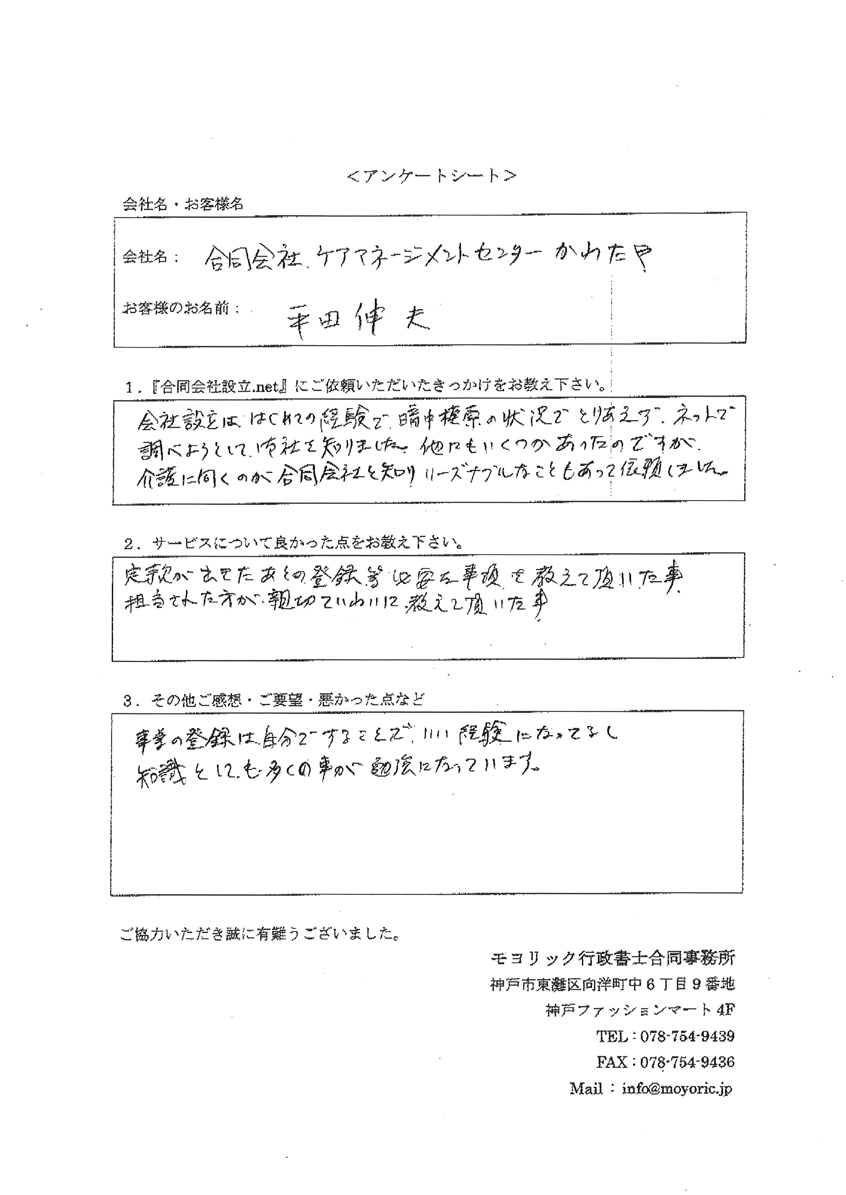 ＜アンケートシート＞
会社名・お客様名
会社名： 合同会社、ケアマネージメントセンター かわた
お客様のお名前： 平田伸夫
１．『合同会社設立.net』にご依頼いただいたきっかけをお教え下さい。
会社設立は はじめての経験で、暗中模索の状況で とりあえず、ネットで
調べようとして、御社を知りました。他にもいくつかあったのですが、
介護に向くのが 合同会社と知り リーズナブルなこともあって依頼しました。
２．サービスについて良かった点をお教え下さい。
定款が出きたあとの登録等 必要な事項を教えて頂いた事
担当された方が、親切ていねいに、教えて頂いた事
３．その他ご感想・ご要望・悪かった点など
事業の登録は、自分ですることで、いい 経験になってるし
知識としても、多くの事が 勉強になっています。
ご協力いただき誠に有難うございました。
モヨリック行政書士合同事務所
神戸市東灘区向洋町中６丁目９番地
神戸ファッションマート 4F
TEL：078-754-9439
FAX：078-754-9436
Mail ： info@moyoric.jp